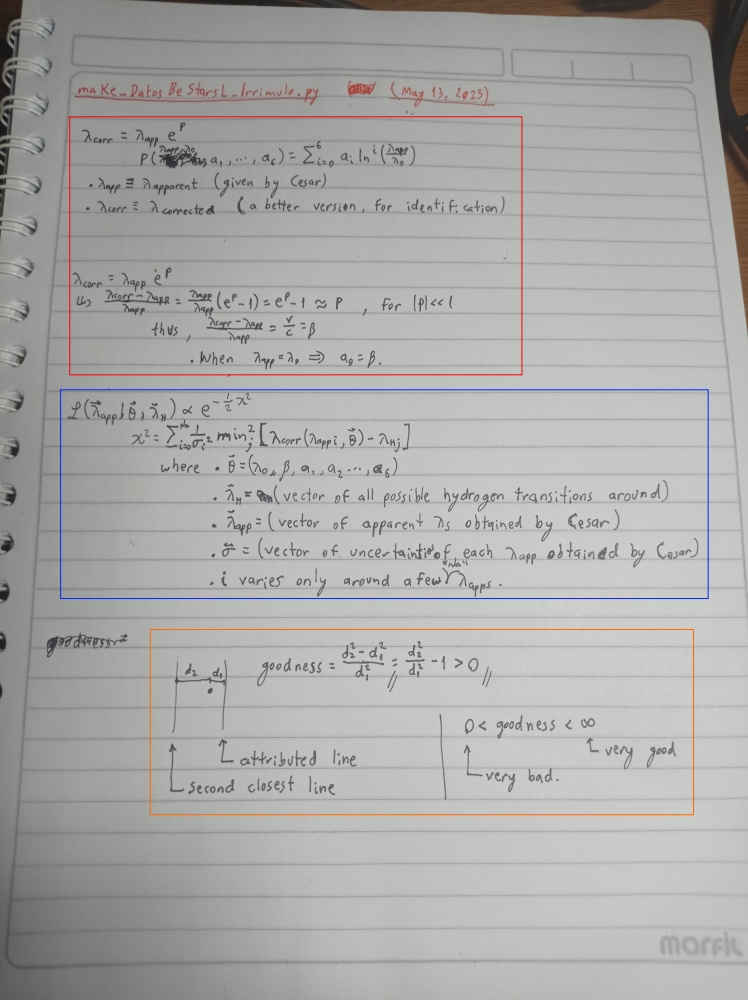 make_DatosBeStarsL_Irrimulo.py (May 13, 2023)
λcorr = λapp e^P
P(λapp, λ0, a1, ..., a6) = Σ_{i=0}^{6} ai ln^i (λapp/λ0)
• λapp ≡ λapparent (given by Cesar)
• λcorr ≡ λcorrected (a better version, for identification)
λcorr = λapp e^P
↳ (λcorr − λapp)/λapp = λapp/λapp (e^P − 1) = e^P − 1 ≈ P , for |P| << 1
thus, (λcorr − λapp)/λapp = v/c = β
• When λapp = λ0 ⇒ a0 = β.
L(λ⃗app | θ⃗, λ⃗H) ∝ e^{−½ x²}
x² = Σ_{i=0}^{Nλ} 1/σi² min_j² [λcorr(λappi, θ⃗) − λHj]
where • θ⃗ = (λ0, β, a1, a2 ..., a6)
• λ⃗H = (vector of all possible hydrogen transitions around)
• λ⃗app = (vector of apparent λs obtained by Cesar)
• σ⃗ = (vector of uncertainties of each λapp obtained by Cesar)
• i varies only around a few λapps.
goodness = (d2² − d1²)/d1² = d2²/d1² − 1 > 0 //
d2 d1
0 < goodness < ∞
attributed line
very good
second closest line
very bad.
marfil